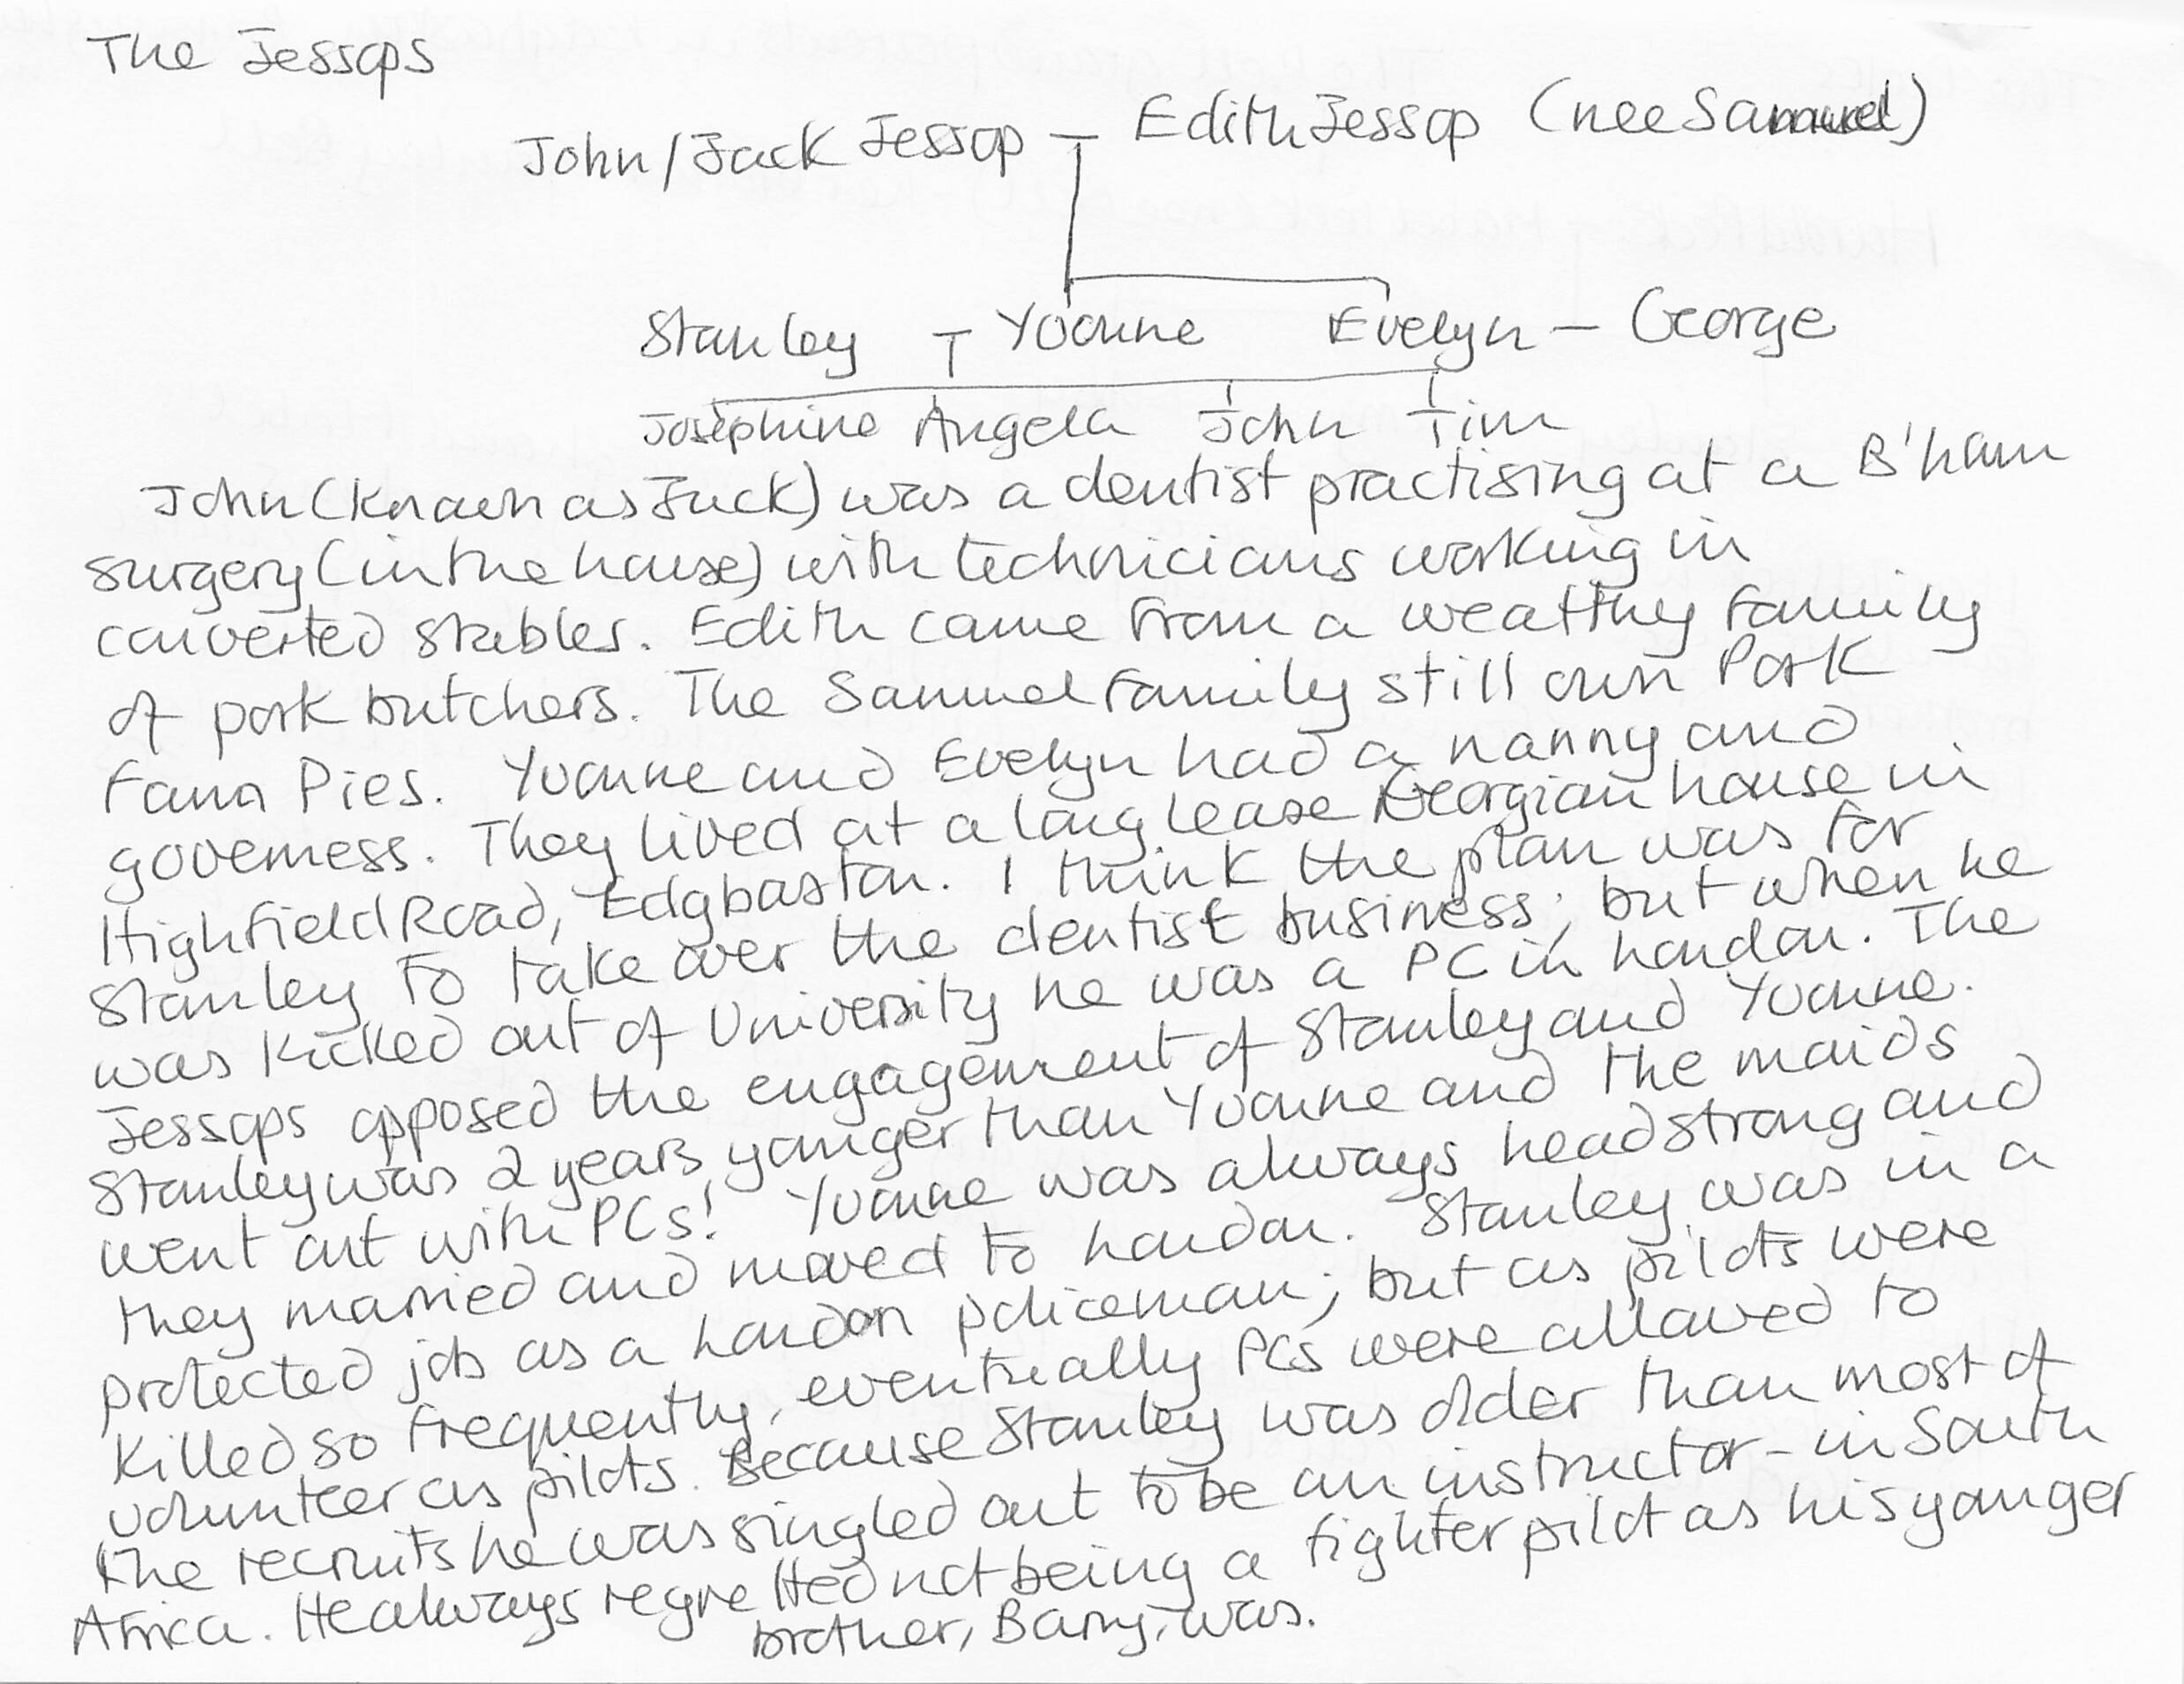 The Jessops
John/Jack Jessop — Edith Jessop (nee Samuel)
Stanley Yvonne Evelyn — George
Josephine Angela John Tim
John (known as Jack) was a dentist practising at a B'ham
surgery (in the house) with technicians working in
converted stables. Edith came from a wealthy family
of pork butchers. The Samuel family still own Pork
Farm Pies. Yvonne and Evelyn had a nanny and
governess. They lived at a long lease Georgian house in
Highfield Road, Edgbaston. I think the plan was for
Stanley to take over the dentist business; but when he
was kicked out of University he was a PC in London. The
Jessops opposed the engagement of Stanley and Yvonne.
Stanley was 2 years younger than Yvonne and the maids
went out with PCs! Yvonne was always headstrong and
they married and moved to London. Stanley was in a
protected job as a London policeman; but as pilots were
killed so frequently, eventually PCs were allowed to
volunteer as pilots. Because Stanley was older than most of
the recruits he was singled out to be an instructor - in South
Africa. He always regretted not being a fighter pilot as his younger
brother, Barry, was.